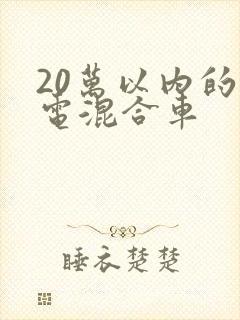 20萬以內的
電混合車
睡衣楚楚